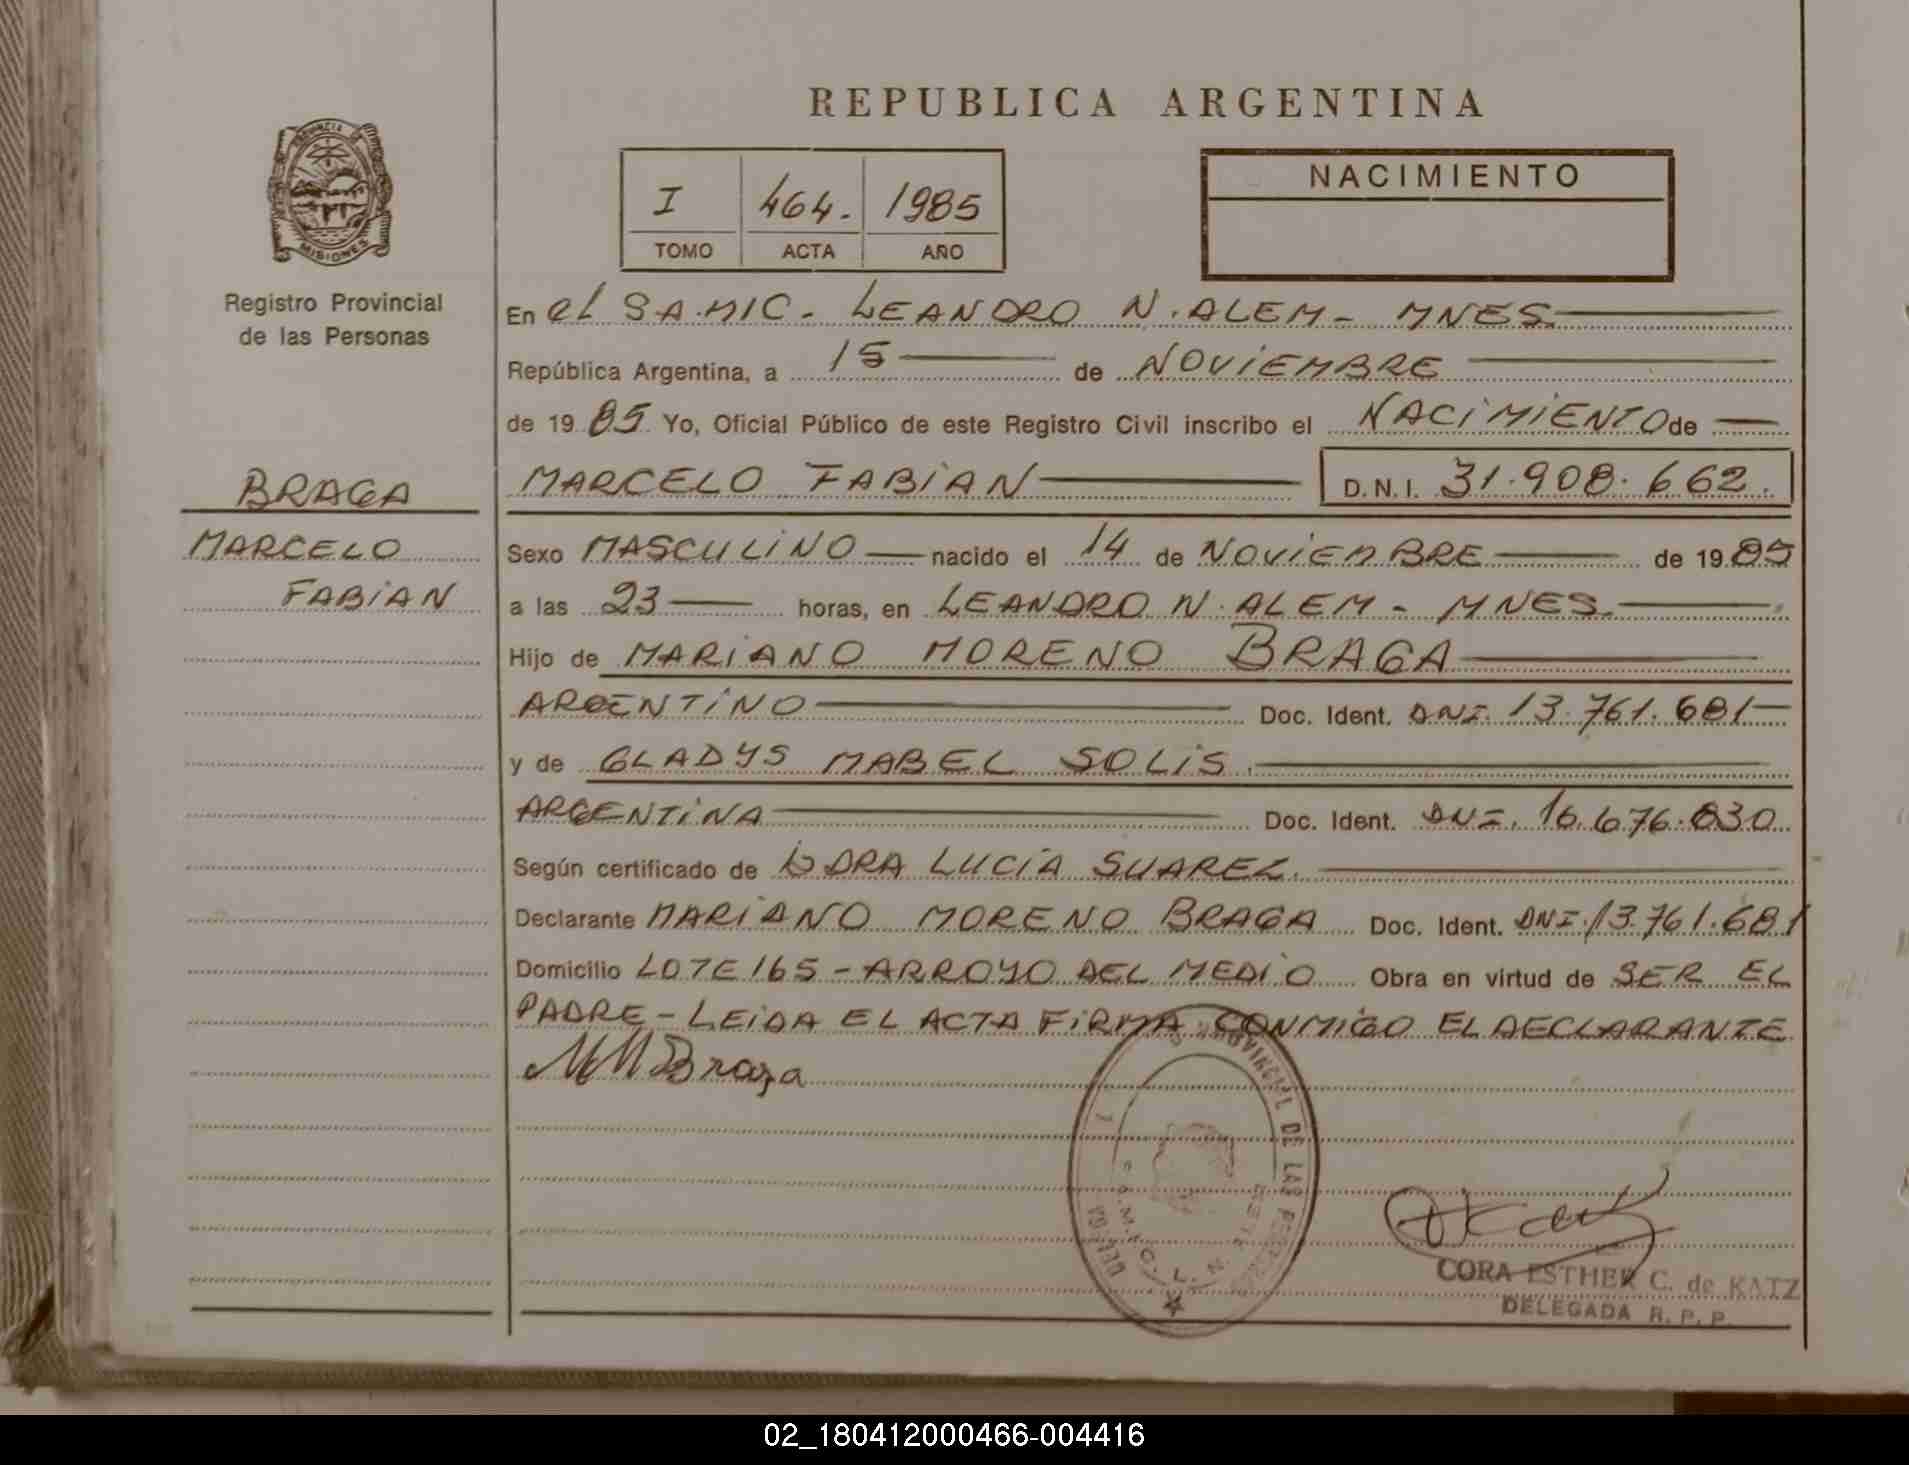 REPUBLICA ARGENTINA
PROVINCIA
MISIONES
Registro Provincial
de las Personas
I 464. 1985
TOMO ACTA AÑO
NACIMIENTO
En el S.A.MIC. LEANDRO N. ALEM - MNES.
República Argentina, a 15 de NOVIEMBRE
de 1985 Yo, Oficial Público de este Registro Civil inscribo el NACIMIENTO de
BRAGA
MARCELO FABIAN D.N.I. 31.908.662.
MARCELO
FABIAN
Sexo MASCULINO nacido el 14 de NOVIEMBRE de 1985
a las 23 horas, en LEANDRO N. ALEM - MNES.
Hijo de MARIANO MORENO BRAGA
ARGENTINO Doc. Ident. DNI. 13.761.681
y de GLADYS MABEL SOLIS.
ARGENTINA Doc. Ident. DNI. 16.676.830
Según certificado de DRA LUCIA SUAREZ.
Declarante MARIANO MORENO BRAGA Doc. Ident. DNI. 13.761.681
Domicilio LOTE 165 - ARROYO DEL MEDIO Obra en virtud de SER EL
PADRE - LEIDA EL ACTA FIRMA CONMIGO EL DECLARANTE
MM Braga
PROVINCIAL DE LAS PERSONAS
L. N. ALEM
CORA ESTHER C. de KATZ
DELEGADA R. P. P.
02_180412000466-004416